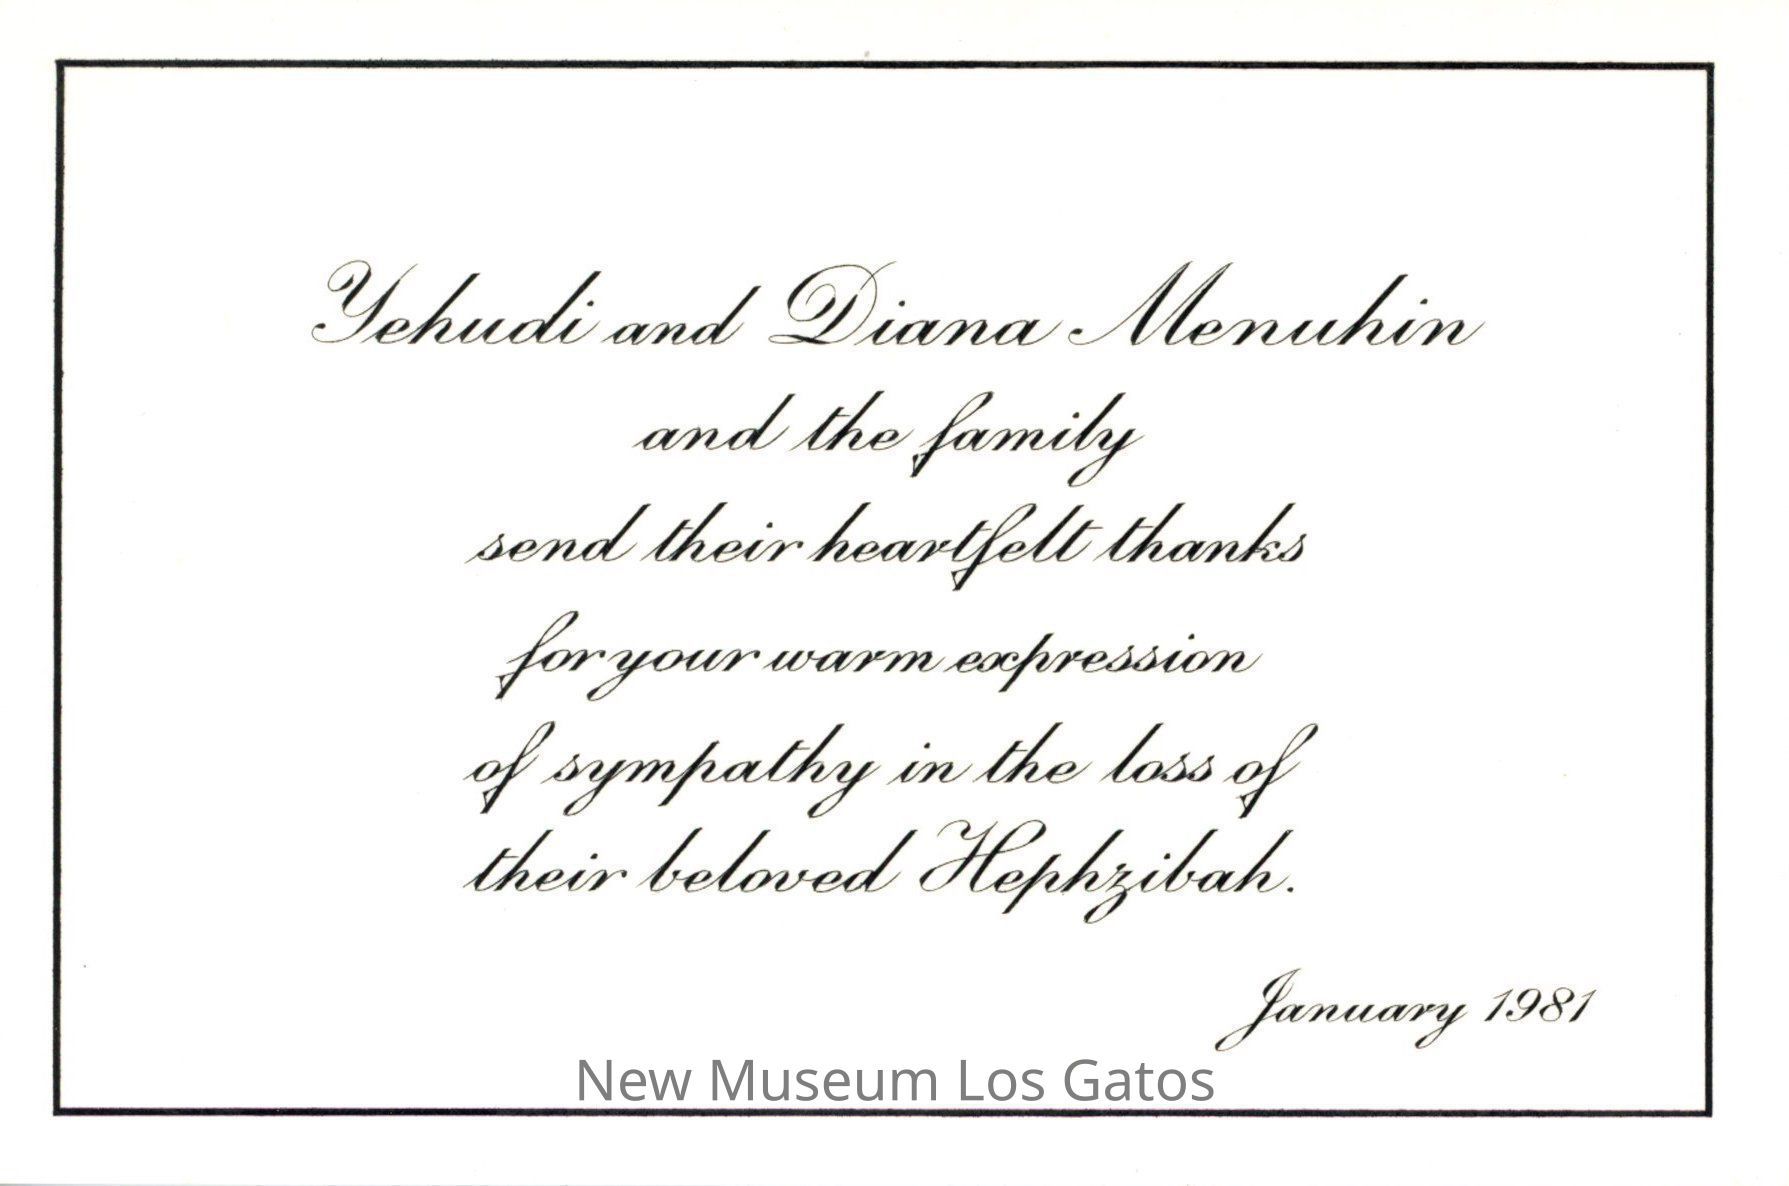 Yehudi and Diana Menuhin
and the family
send their heartfelt thanks
for your warm expression
of sympathy in the loss of
their beloved Hephzibah.
January 1981
New Museum Los Gatos